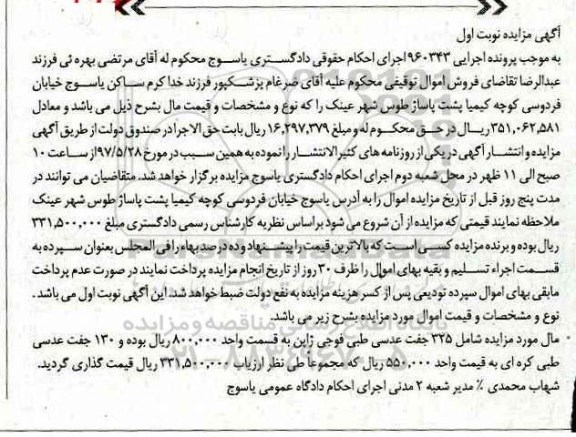 آگهی مزایده نوبت اول
به موجب پرونده اجرایی ۹۶۰۳۴۳ اجرای احکام حقوقی دادگستری یاسوج محکوم له آقای مرتضی بهره ئی فرزند
عبدالرضا تقاضای فروش اموال توقیفی محکوم علیه آقای ضرغام پزشکپور فرزند خداکرم ساکن یاسوج خیابان
فردوسی کوچه کیمیا پشت پاساژ طوس شهر عینک را که نوع و مشخصات و قیمت مال بشرح ذیل می باشد و معادل
۳۵۱,۰۶۲,۵۸۱ ریال در حق محکوم له و مبلغ ۱۶,۲۹۷,۳۷۹ ریال بابت حق الاجرا در صندوق دولت از طریق آگهی
مزایده و انتشار آگهی در یکی از روزنامه های کثیرالانتشار را نموده به همین سبب در مورخ ۹۷/۵/۲۸ از ساعت ۱۰
صبح الی ۱۱ ظهر در محل شعبه دوم اجرای احکام دادگستری یاسوج مزایده برگزار خواهد شد. متقاضیان می توانند در
مدت پنج روز قبل از تاریخ مزایده اموال را به آدرس یاسوج خیابان فردوسی کوچه کیمیا پشت پاساژ طوس شهر عینک
ملاحظه نمایند قیمتی که مزایده از آن شروع می شود براساس نظریه کارشناس رسمی دادگستری مبلغ ۳۳۱,۵۰۰,۰۰۰
ریال بوده و برنده مزایده کسی است که بالاترین قیمت را پیشنهاد و ده درصد بهاء را فی المجلس بعنوان سپرده به
قسمت اجراء تسلیم و بقیه بهای اموال را ظرف ۳۰ روز از تاریخ انجام مزایده پرداخت نمایند در صورت عدم پرداخت
مابقی بهای اموال سپرده تودیعی پس از کسر هزینه مزایده به نفع دولت ضبط خواهد شد. این آگهی نوبت اول می باشد.
نوع و مشخصات و قیمت اموال مورد مزایده بشرح زیر می باشد.
مال مورد مزایده شامل ۳۲۵ جفت عدسی طبی فوجی ژاپن به قسمت واحد ۸۰۰,۰۰۰ ریال بوده و ۱۳۰ جفت عدسی
طبی کره ای به قیمت واحد ۵۵۰,۰۰۰ ریال که مجموعاً طی نظر ارزیاب ۳۳۱,۵۰۰,۰۰۰ ریال قیمت گذاری گردید.
شهاب محمدی ٪ مدیر شعبه ۲ مدنی اجرای احکام دادگاه عمومی یاسوج